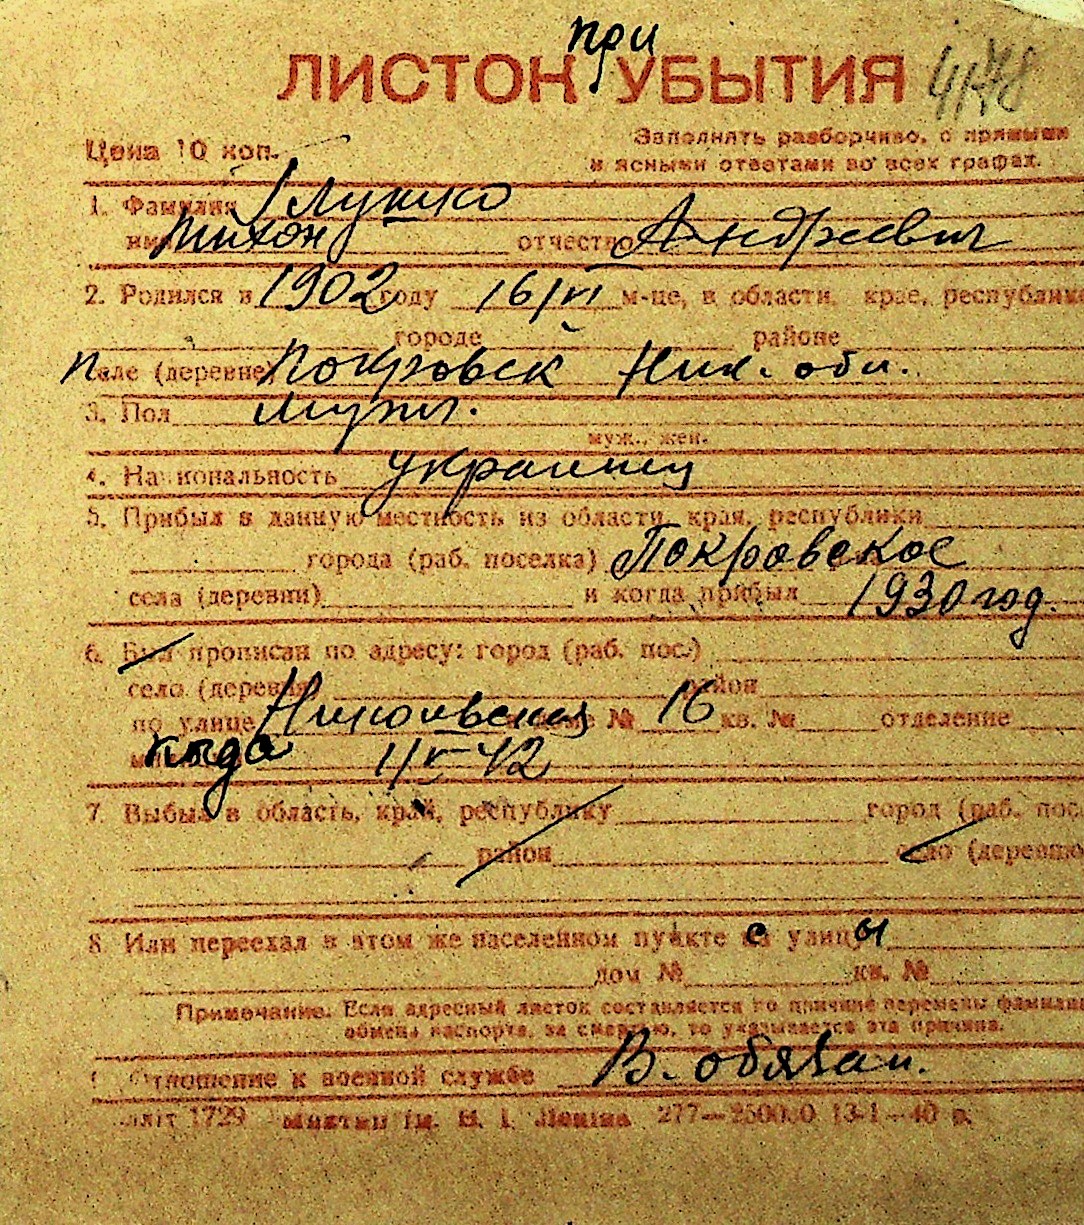 при
ЛИСТОК УБЫТИЯ
Цена 10 коп.
Заполнять разборчиво, с прямыми
и ясными ответами во всех графах.
1. Фамилия Глушко
имя Тихон отчество Андреевич
2. Родился в 1902 году 16/VI м-це, в области, крае, республике
городе районе
п. селе (деревне) Покровск Ник. обл.
3. Пол мужч.
муж., жен.
4. Национальность украинец
5. Прибыл в данную местность из области, края, республики
города (раб. поселка) Покровское
села (деревни) и когда прибыл 1930 год.
6. Был прописан по адресу: город (раб. пос.)
село (деревня) район
по улице Николаевская в доме № 16 кв. № отделение
когда 1/V-42
7. Выбыл в область, край, республику город (раб. пос.
район село (деревню
8. Или переехал в этом же населенном пункте с улицы
дом № кв. №
Примечание. Если адресный листок составляется по причине перемены фамилии
обмена паспорта, за смертью, то указывается эта причина.
Отношение к военной службе В. обязан.
1729 ім. В. І. Леніна 277—25000 13-1—40 р.